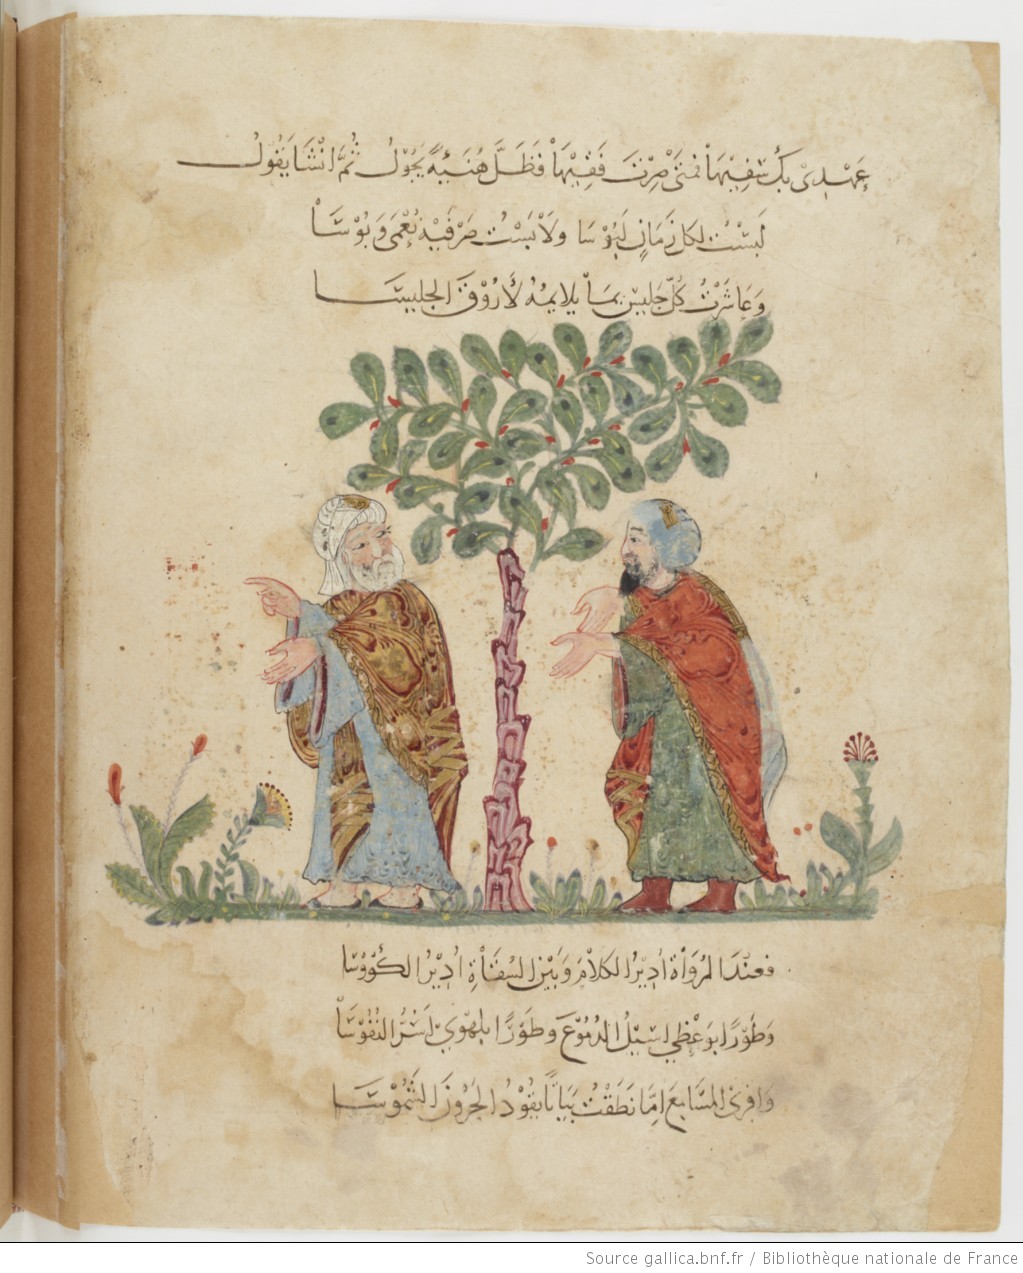 عَهْدِي بِكَ سَفِيْهَاً فَمَتَى صِرْتَ فَقِيْهَاً فَظَلَّ هُنَيْئَةً يَجُوْلُ ثُمَّ انْشَا يَقُوْلُ
لَبِسْتُ لِكُلِّ زَمَانٍ لَبُوْسَا وَلَابَسْتُ صَرْفَيْهِ نُعْمَى وَبُوْسَاً
وَعَاشَرْتُ كُلَّ جَلِيْسٍ بِمَا يُلايِمُهُ لأَرُوْقَ الجَلِيْسَا
فَعِنْدَ الرُّوَاةِ اُدِيْرُ الكَلَامَ وَبَيْنَ السُّقَاةِ اُدِيْرُ الكُؤُوْسَا
وَطَوْرًا بِوَعْظِي اُسِيْلُ الدُّمُوْعَ وَطَوْرًا بِلَهْوِيَ اَسُرُّ النُّفُوْسَاً
وَاَقْرِي المَسَامِعَ اِمَّا نَطَقْتُ بَيَانًا يَقُوْدُ الحَرُوْنَ الشَّمُوْسَا
Source gallica.bnf.fr / Bibliothèque nationale de France